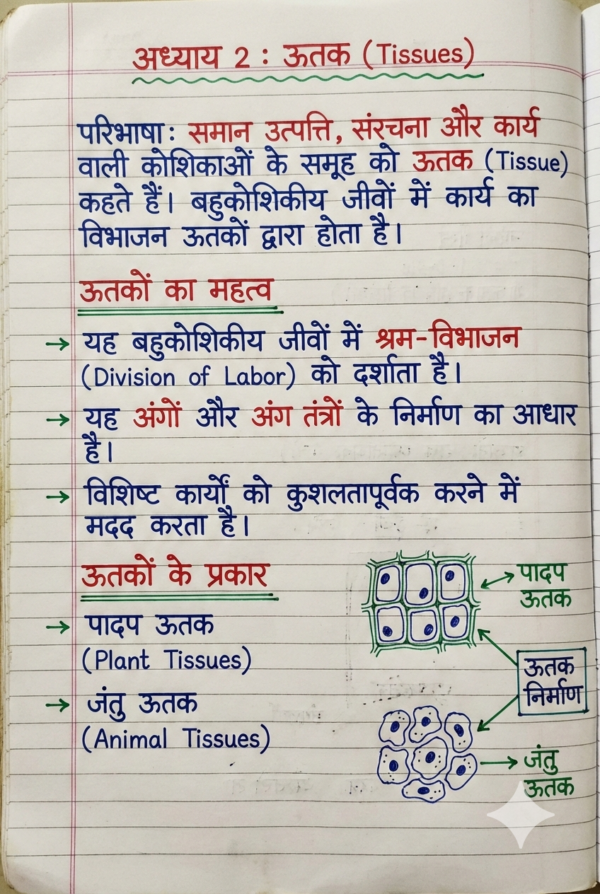 अध्याय 2 : ऊतक (Tissues)
परिभाषा: समान उत्पत्ति, संरचना और कार्य
वाली कोशिकाओं के समूह को ऊतक (Tissue)
कहते हैं। बहुकोशिकीय जीवों में कार्य का
विभाजन ऊतकों द्वारा होता है।
ऊतकों का महत्व
→ यह बहुकोशिकीय जीवों में श्रम-विभाजन
(Division of Labor) को दर्शाता है।
→ यह अंगों और अंग तंत्रों के निर्माण का आधार
है।
→ विशिष्ट कार्यों को कुशलतापूर्वक करने में
मदद करता है।
ऊतकों के प्रकार
→ पादप ऊतक
(Plant Tissues)
→ जंतु ऊतक
(Animal Tissues)
पादप
ऊतक
ऊतक
निर्माण
जंतु
ऊतक